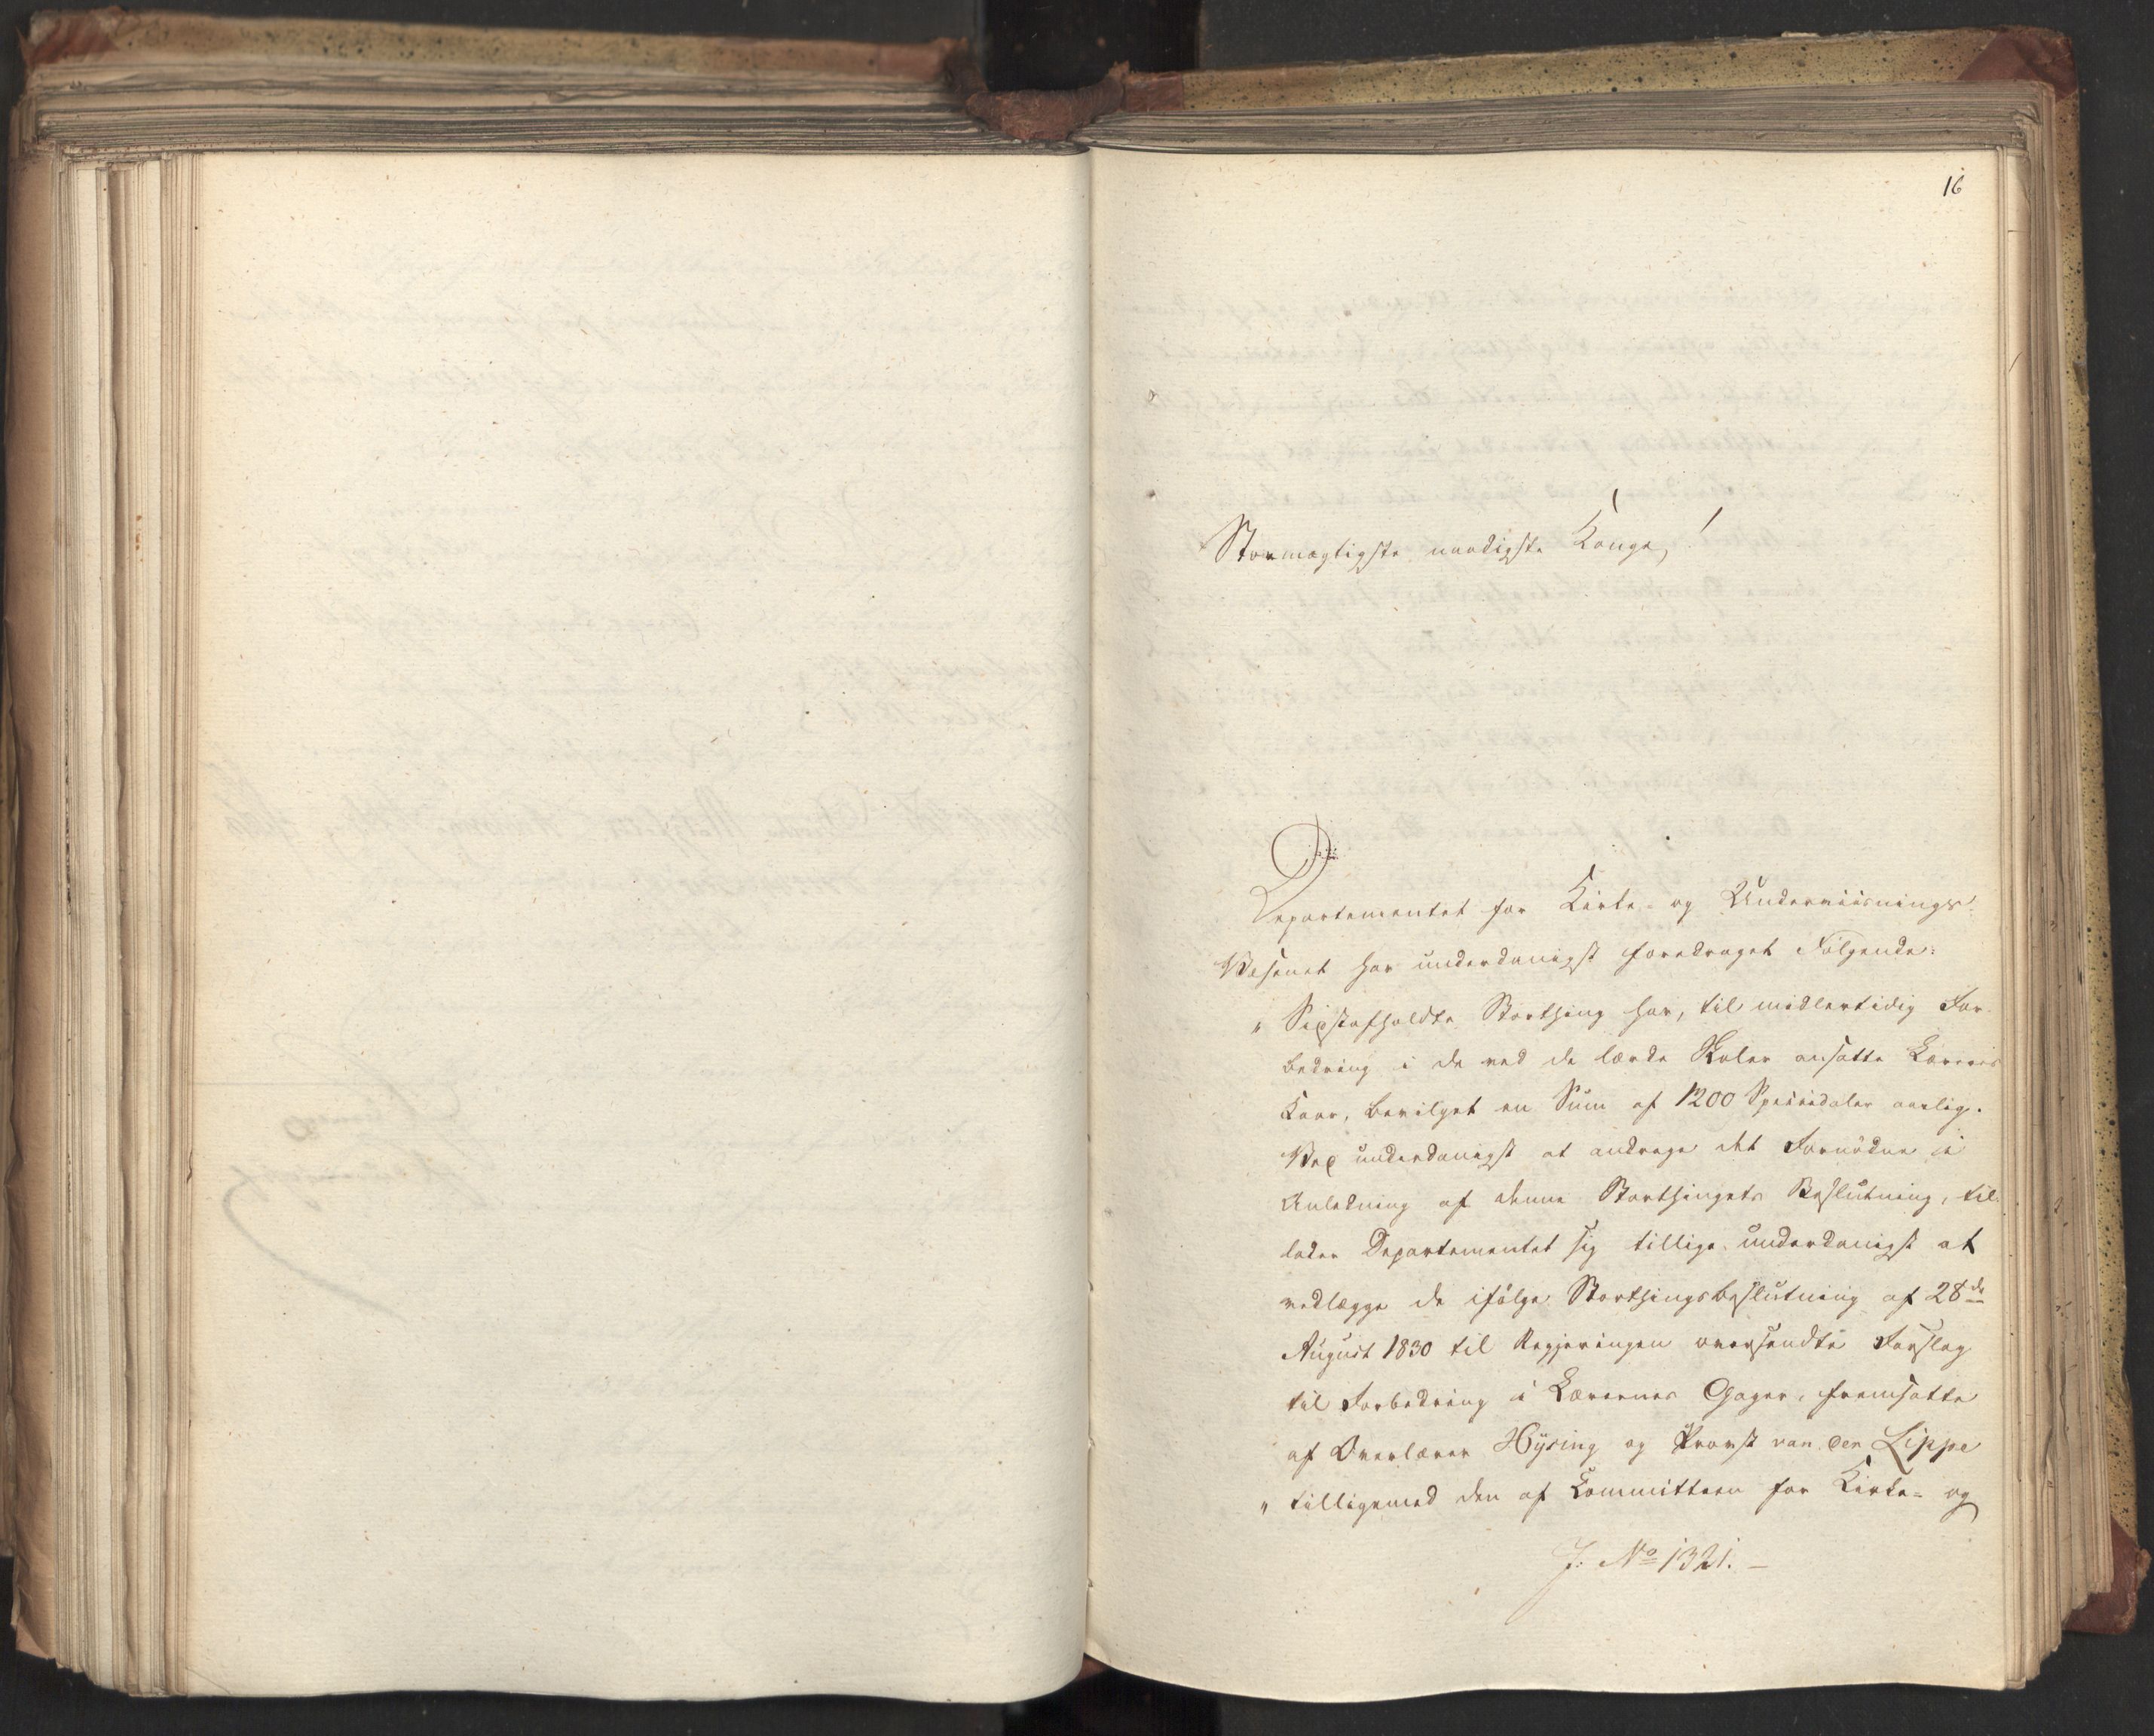 16
Stormægtigste naadigste Konge!
Departementet for Kirke- og Underviisnings-
Væsenet har underdanigst foredraget Følgende:
„ Sidstafholdte Storthing har, til midlertidig For-
bedring i de ved de lærde Skoler ansatte Læreres
Kaar, bevilget en Sum af 1200 Speciedaler aarlig.
Ved underdanigst at andrage det Fornødne i
Anledning af denne Storthingets Beslutning, til-
lader Departementet sig tillige underdanigst at
vedlægge de ifølge Storthingsbeslutning af 28de
August 1830 til Regjeringen oversendte Forslag
til Forbedring i Lærernes Gager, fremsatte
af Overlærer Hysing og Provst van der Lippe
„ tilligemed den af Committeen for Kirke- og
J: No 1321. –